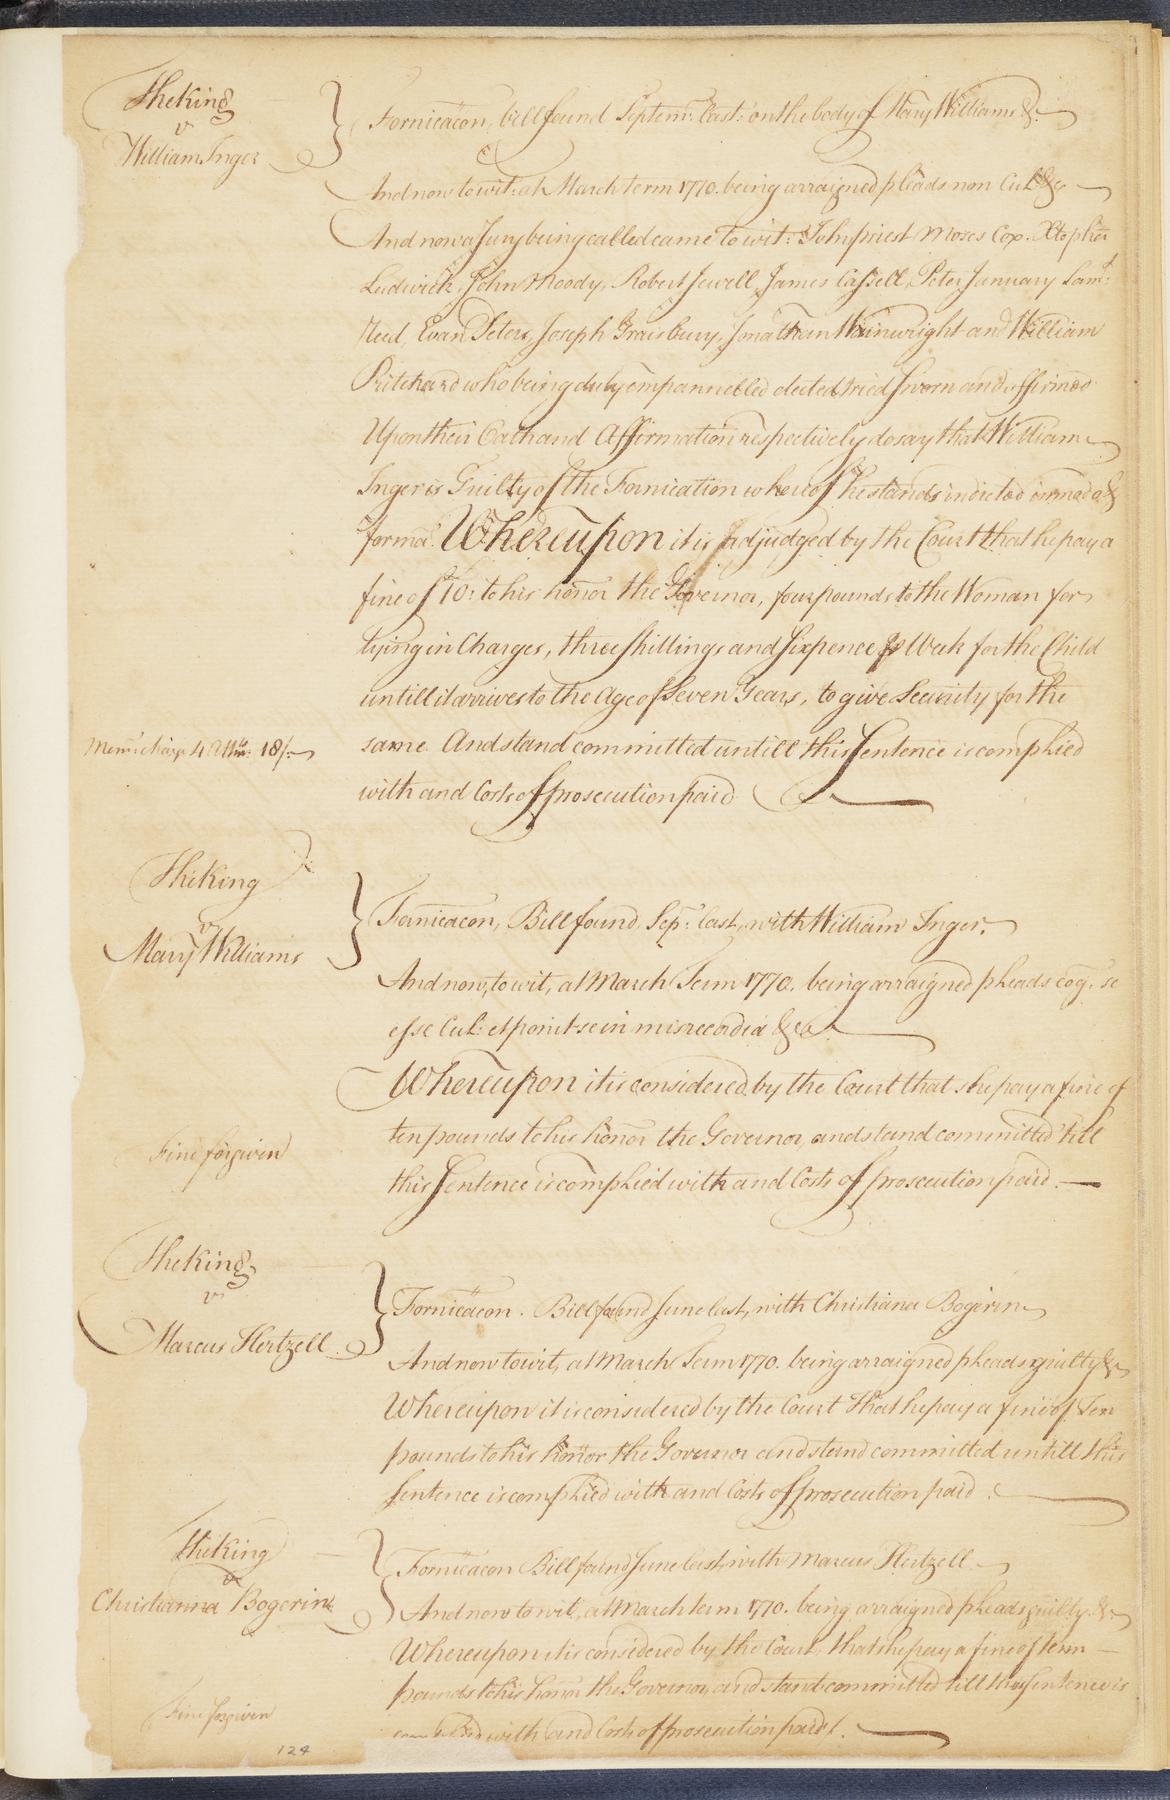 The King
v
William Inger
Fornicãcon, bill found Septem: last: on the body of Mary Williams &c
And now to wit: at March term 1770. being arraigned pleads non Cul &c
And now a Jury being called came to wit: John priest Moses Cox. Xtopher
Ludwick, John Moody, Robert Jewell, James Cassell, Peter January Saml:
Reed, Evan Peters, Joseph Graisbury, Jonathan Wainwright and William
Pritchard who being duly empannelled elected tried sworn and affirmed
Upon their Oath and Affirmation respectively do say that William
Inger is Guilty of the Fornication whereof he stands indicted in mado &
forma. Whereupon it is adjudged by the Court that he pay a
fine of £10: to his honor the Governor, four pounds to the Woman for
lying in Charges, three shillings and sixpence Week for the Child
untill it arrives to the Age of Seven Years, to give Security for the
same. And stand committed untill this Sentence is complied
with and Costs of prosecution paid
4 18/
The King
v
Mary Williams
Fornicãcon, Bill found Sep: last, with William Inger.
And now, to wit, at March Term 1770. being arraigned pleads cog. se
esse Cul: et ponit se in misrecordia &c
Whereupon it is considered by the Court that she pay a fine of
ten pounds to his honor the Governor, and stand committed till
this Sentence is complied with and Costs of prosecution paid.
Fine forgiven
The King
v
Marcus Hertzell
Fornicãcon. Bill found June last, with Christiana Bogerin
And now to wit, at March Term 1770. being arraigned pleads guilty &c
Whereupon it is considered by the Court that he pay a fine of Ten
pounds to his honor the Governor and stand committed untill this
Sentence is complied with and Costs of prosecution paid.
The King
v
Christianna Bogerin
Fornicãcon Bill found June last, with Marcus Hertzell
And now to wit, at March term 1770. being arraigned pleads guilty &c
Whereupon it is considered by the Court, that she pay a fine of tenn
pounds to his honor the Governor, and stand committed till this Sentence is
complied with and Costs of prosecution paid.
Fine forgiven
124